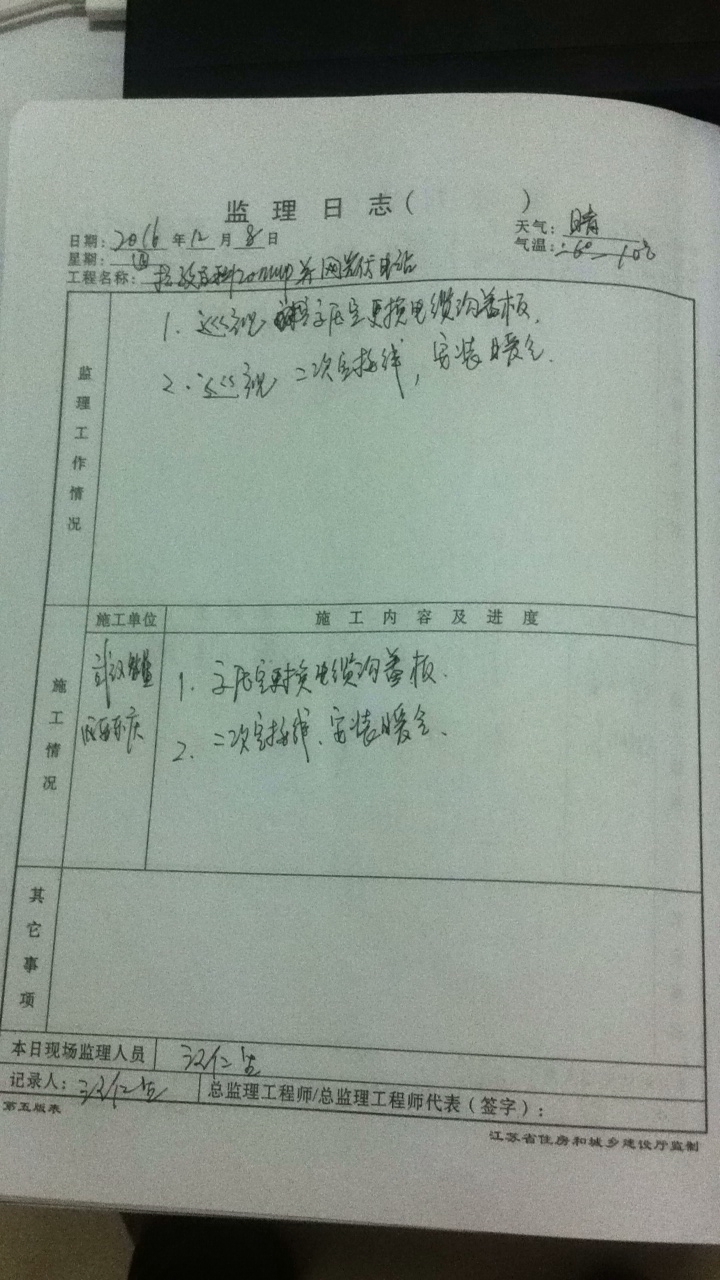 监理日志( )
日期: 2016 年 12 月 8 日
天气: 晴
星期: 四
气温: -6°~10°
工程名称: 并网光伏电站
监理工作情况
1. 巡视 子阵室更换电缆沟盖板.
2. 巡视 二次室接线, 安装暖气.
施工情况
施工单位
施工内容及进度
武汉
1. 室更换电缆沟盖板.
2. 二次室接线、安装暖气.
其它事项
本日现场监理人员
记录人:
总监理工程师/总监理工程师代表(签字):
第五版表
江苏省住房和城乡建设厅监制